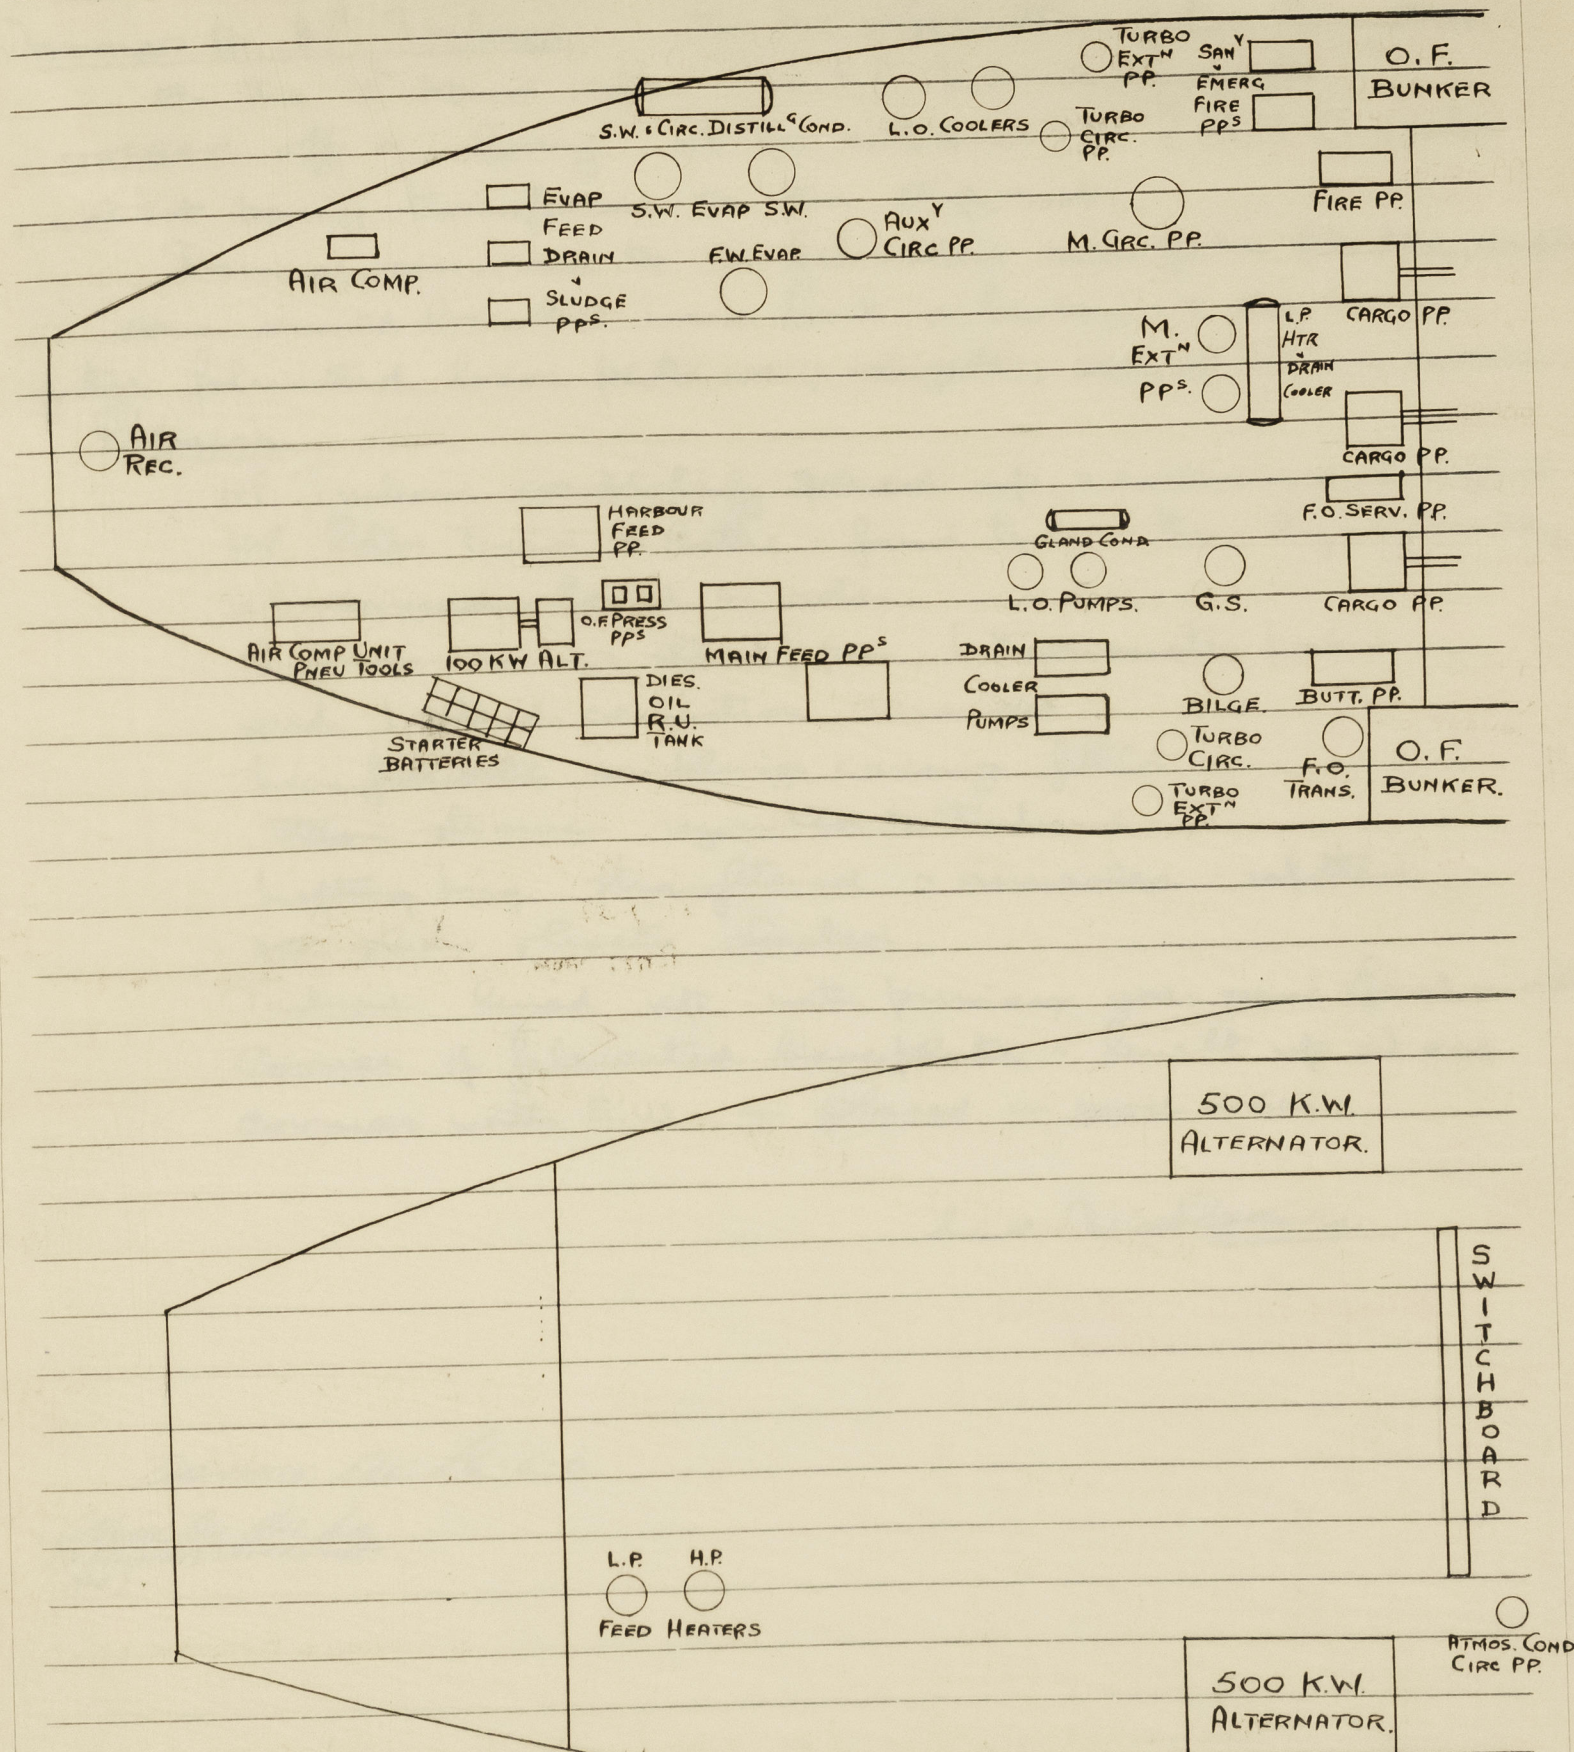 TURBO
EXTᴺ
PP.
SANʸ
&
EMERG
FIRE
PPˢ
O.F.
BUNKER
S.W. & CIRC. DISTILLᴳ COND.
L.O. COOLERS
TURBO
CIRC.
PP.
FIRE PP.
EVAP
FEED
DRAIN
&
SLUDGE
PPˢ.
S.W. EVAP S.W.
AUXʸ
CIRC PP.
M. CIRC. PP.
AIR COMP.
F.W. EVAP.
CARGO PP.
M.
EXTᴺ
PPˢ.
L.P.
HTR
&
DRAIN
COOLER
CARGO PP.
AIR
REC.
F.O. SERV. PP.
HARBOUR
FEED
PP.
GLAND COND
L.O. PUMPS.
G.S.
CARGO PP.
O.F. PRESS
PPS
AIR COMP UNIT
PNEU TOOLS
100 KW ALT.
MAIN FEED PPˢ
DRAIN
COOLER
PUMPS
DIES.
OIL
R.U.
TANK
BILGE.
BUTT. PP.
STARTER
BATTERIES
TURBO
CIRC.
F.O.
TRANS.
O.F.
BUNKER.
TURBO
EXTᴺ
PP.
500 K.W.
ALTERNATOR.
SWITCHBOARD
L.P. H.P.
FEED HEATERS
ATMOS. COND
CIRC PP.
500 K.W.
ALTERNATOR.